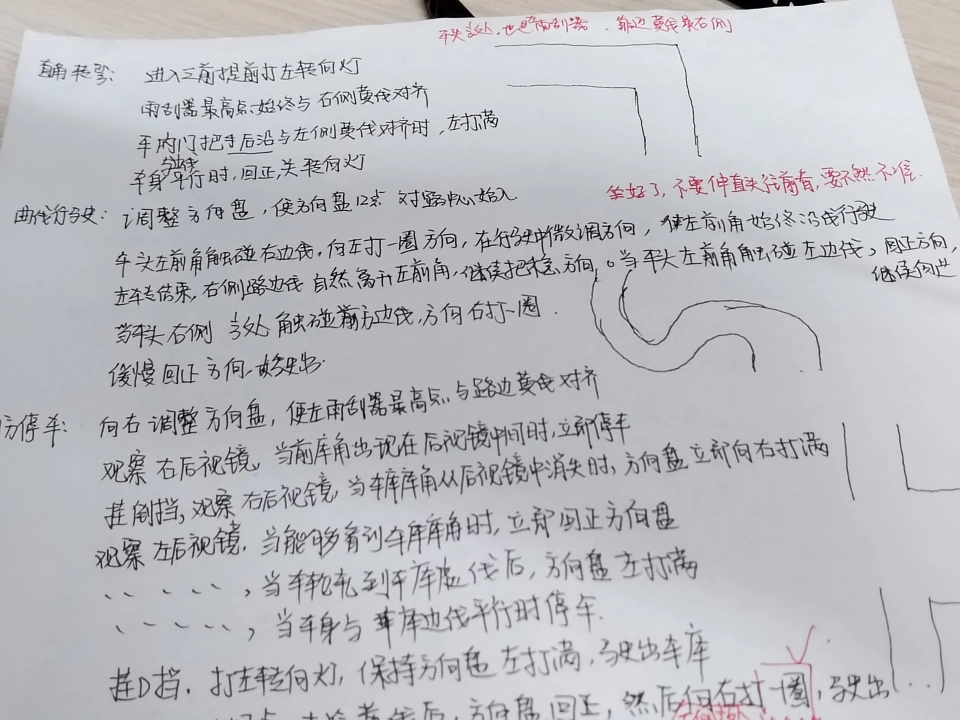 车头凸处,也是雨刮器、靠边黄线最右侧
直角转弯: 进入之前提前打左转向灯
雨刮器最高点始终与右侧黄线对齐
车内门把手后沿与左侧黄线对齐时,左打满
车身与边线平行时,回正,关转向灯
坐好了,不要伸直头往前看,要不然不准.
曲线行驶: 调整方向盘,使方向盘12点 对路中心驶入
车头左前角触碰右边线,向左打一圈方向,在行驶中微调方向,使左前角始终沿线行驶
左转结束,右侧路边线自然离开左前角,继续把稳方向。当车头左前角触碰左边线,回正方向,
继续向
当车头右侧 凸处 触碰前方边线,方向右打一圈.
缓慢回正方向,驶出.
方停车: 向右调整方向盘,使左雨刮器最高点与路边黄线对齐
观察右后视镜,当前库角出现在后视镜中间时,立即停车
挂倒挡,观察右后视镜,当车库库角从后视镜中消失时,方向盘立即向右打满
观察左后视镜,当能够看到车库库角时,立即回正方向盘
、、、、、、,当车轮轧到车库底线后,方向盘左打满
、、、、、、,当车身与车库边线平行时停车.
挂D挡.打左转向灯,保持方向盘左打满,驶出车库
后,方向盘回正,然后向右打一圈,驶出